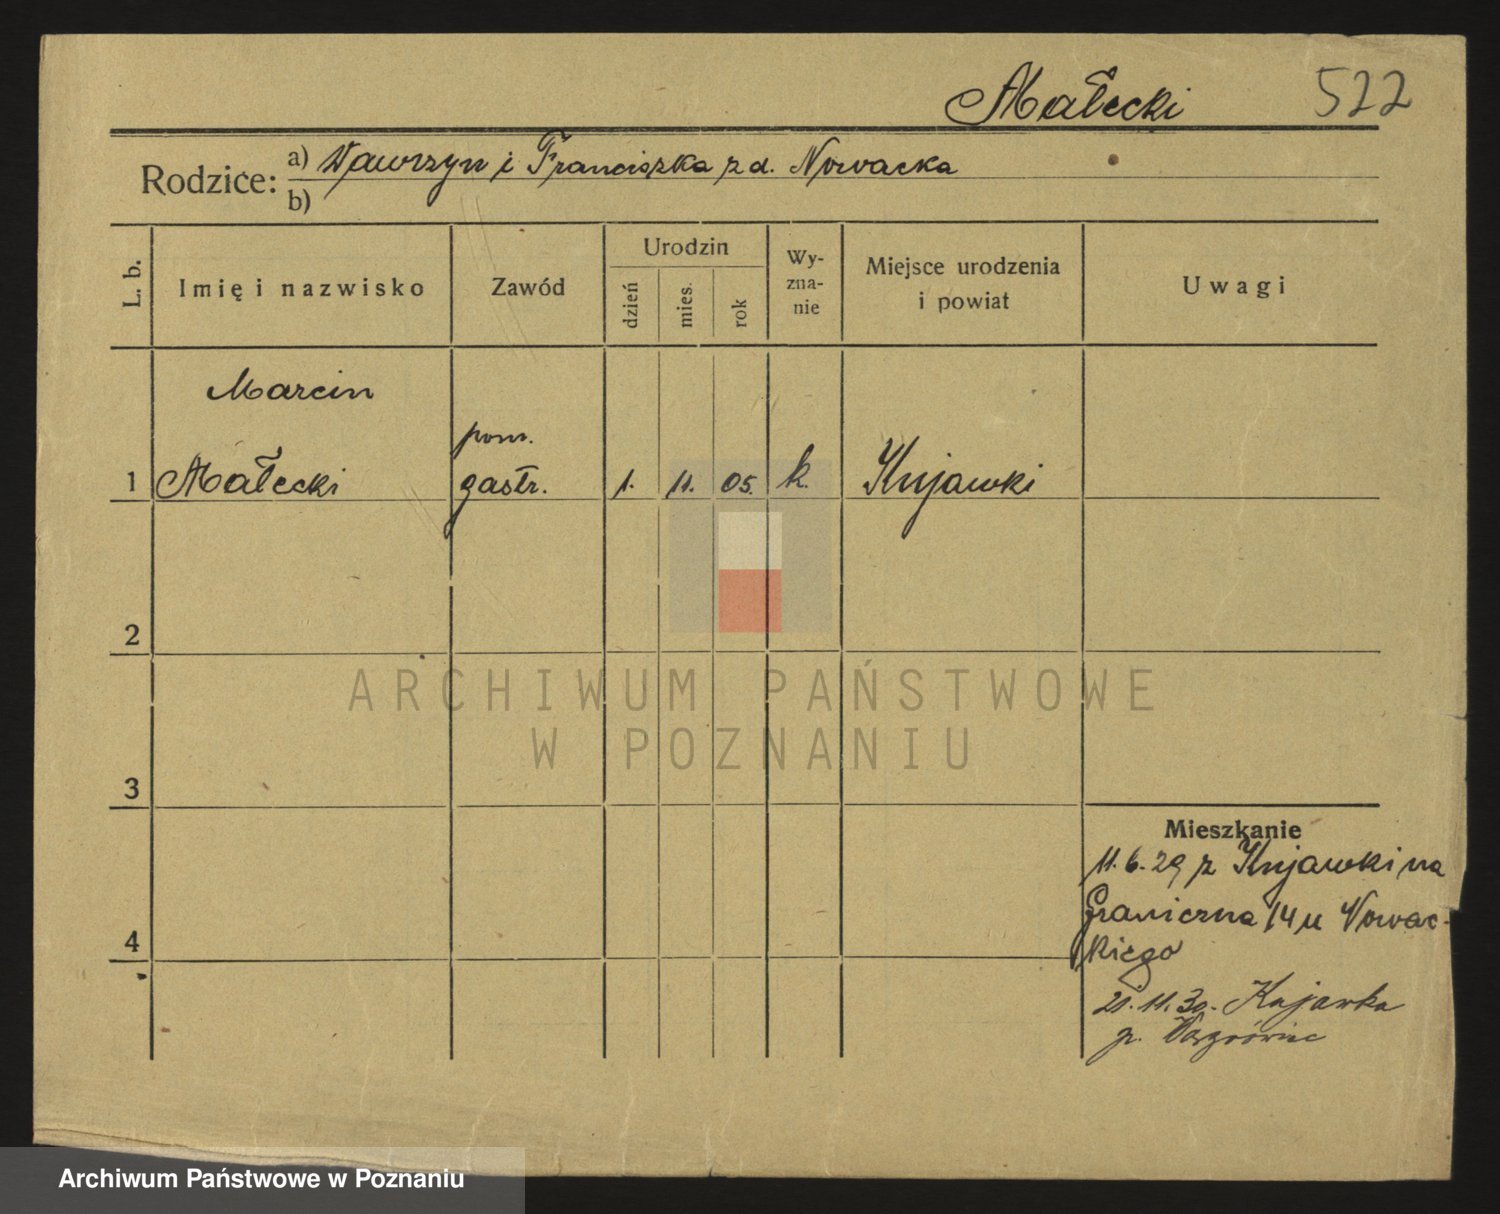 Małecki 522
Rodzice: a) Wawrzyn i Franciszka z d. Nowacka
b)
L. b. Imię i nazwisko Zawód Urodzin dzień mies. rok Wy-zna-nie Miejsce urodzenia i powiat Uwagi
Marcin
pom.
1 Małecki gastr. 1. 11. 05. k. Kujawki
2
3
4
Mieszkanie
11.6.29 z Kujawki na
Graniczna 14 u Nowac-
kiego
21.11.30. Kujawka
p. Wągrówiec
ARCHIWUM PAŃSTWOWE
W POZNANIU
Archiwum Państwowe w Poznaniu